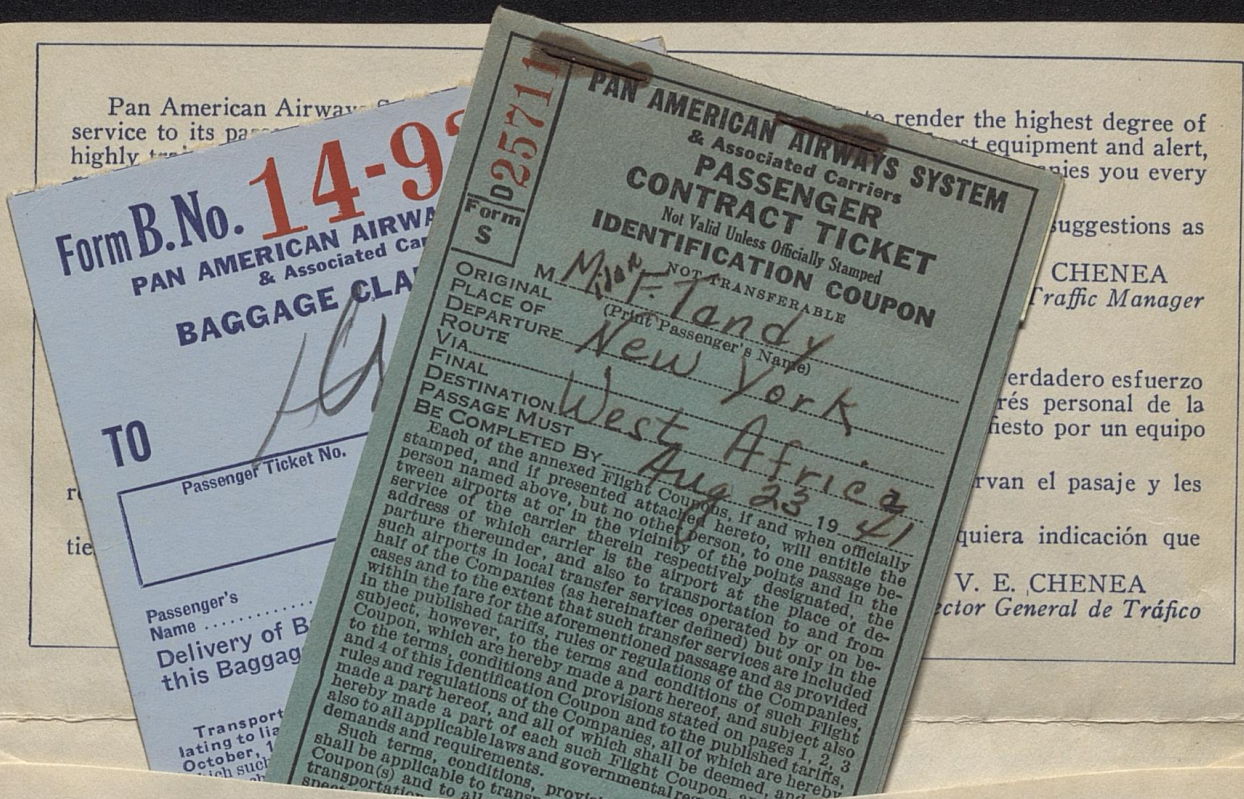 Pan American Airways
to render the highest degree of
service to its
equipment and alert,
highly
you every
suggestions as
CHENEA
Traffic Manager
erdadero esfuerzo
rés personal de la
fiesto por un equipo
rvan el pasaje y les
quiera indicación que
V. E. CHENEA
ector General de Tráfico
tie
Form B. No. 14-9
PAN AMERICAN AIRWA
& Associated Car
BAGGAGE CLA
TO
Passenger Ticket No.
Passenger's
Name
Delivery of B
this Baggag
Transport
lating to lia
October, 1
hich such
D 25711
Form
S
PAN AMERICAN AIRWAYS SYSTEM
& Associated Carriers
PASSENGER
CONTRACT TICKET
Not Valid Unless Officially Stamped
IDENTIFICATION COUPON
NOT TRANSFERABLE
M. F. Tandy
(Print Passenger's Name)
ORIGINAL
PLACE OF
DEPARTURE New York
ROUTE
VIA
FINAL
DESTINATION West Africa
PASSAGE MUST
BE COMPLETED BY Aug 23 19 41
Each of the annexed Flight Coupons, if and when officially
stamped, and if presented attached hereto, will entitle the
person named above, but no other person, to one passage be-
tween airports at or in the vicinity of the points and in the
service of the carrier therein respectively designated, the
address of which carrier is the airport at the place of de-
parture thereunder, and also to transportation to and from
such airports in local transfer services operated by or on be-
half of the Companies (as hereinafter defined) but only in the
cases and to the extent that such transfer services are included
within the fare for the aforementioned passage and as provided
in the published tariffs, rules or regulations of the Companies,
subject, however, to the terms and conditions of such Flight
Coupon, which are hereby made a part hereof, and subject also
to the terms, conditions and provisions stated on pages 1, 2, 3
and 4 of this Identification Coupon and to the published tariffs,
rules and regulations of the Companies, all of which are hereby
made a part hereof, and all of which shall be deemed, and are
hereby made a part of each such Flight Coupon, and
also to all applicable laws and governmental
demands and requirements.
Such terms, conditions,
shall be applicable to
Coupon(s) and to all